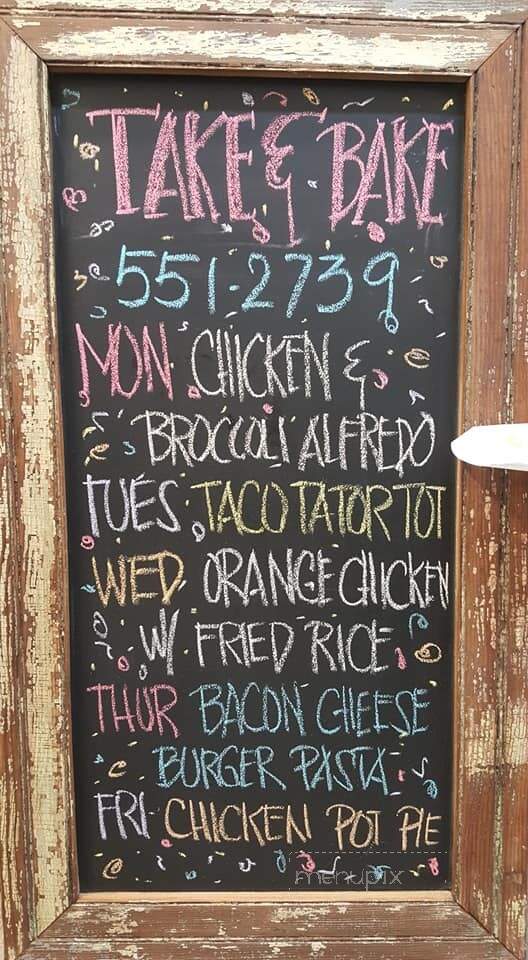 TAKE & BAKE
551-2739
MON CHICKEN &
BROCCOLI ALFREDO
TUES TACO TATOR TOT
WED ORANGE CHICKEN
W/ FRIED RICE
THUR BACON CHEESE
BURGER PASTA
FRI CHICKEN POT PIE
menupix